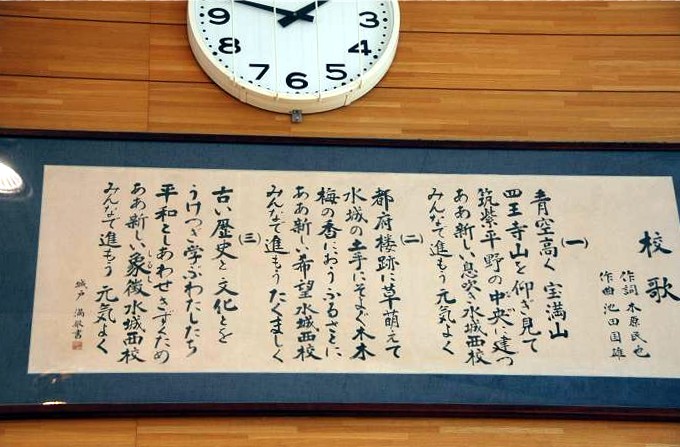 9
3
8
4
7
6
5
校歌
作詞 木原民也
作曲 池田国雄
(一)
青空高く 宝満山
四王寺山を仰ぎ見て
筑紫平野の中央に建つ
ああ新しい息吹き水城西校
みんなで進もう 元気よく
(二)
都府楼跡に草萌えて
水城の土手にそよぐ木木
梅の香におうふるさとに
ああ新しい希望水城西校
みんなで進もう たくましく
(三)
古い歴史と文化とを
うけつぎ学ぶわたしたち
平和としあわせきずくため
ああ新しい象徴水城西校
みんなで進もう 元気よく
城戸 満